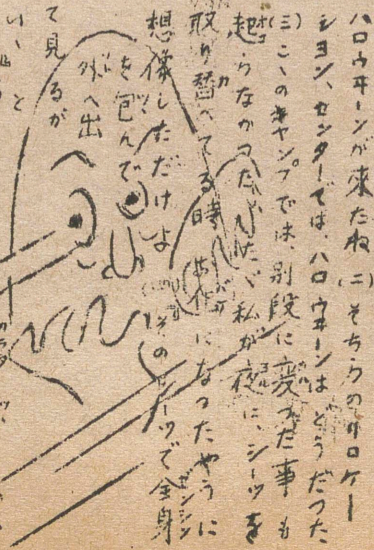 ハロウヰーンが来たね(二)そちらのリロケー
シヨン、センターでは、ハロウヰーンはどうだつた
(三)こゝのキャンプでは、別段に変つた事も
起らなかつた ゞ私が夜に、シーツを
取り替へてる時 になつたやうに
想像しただけよ そのシーツで全身
を包んで
外へ出
て見るが